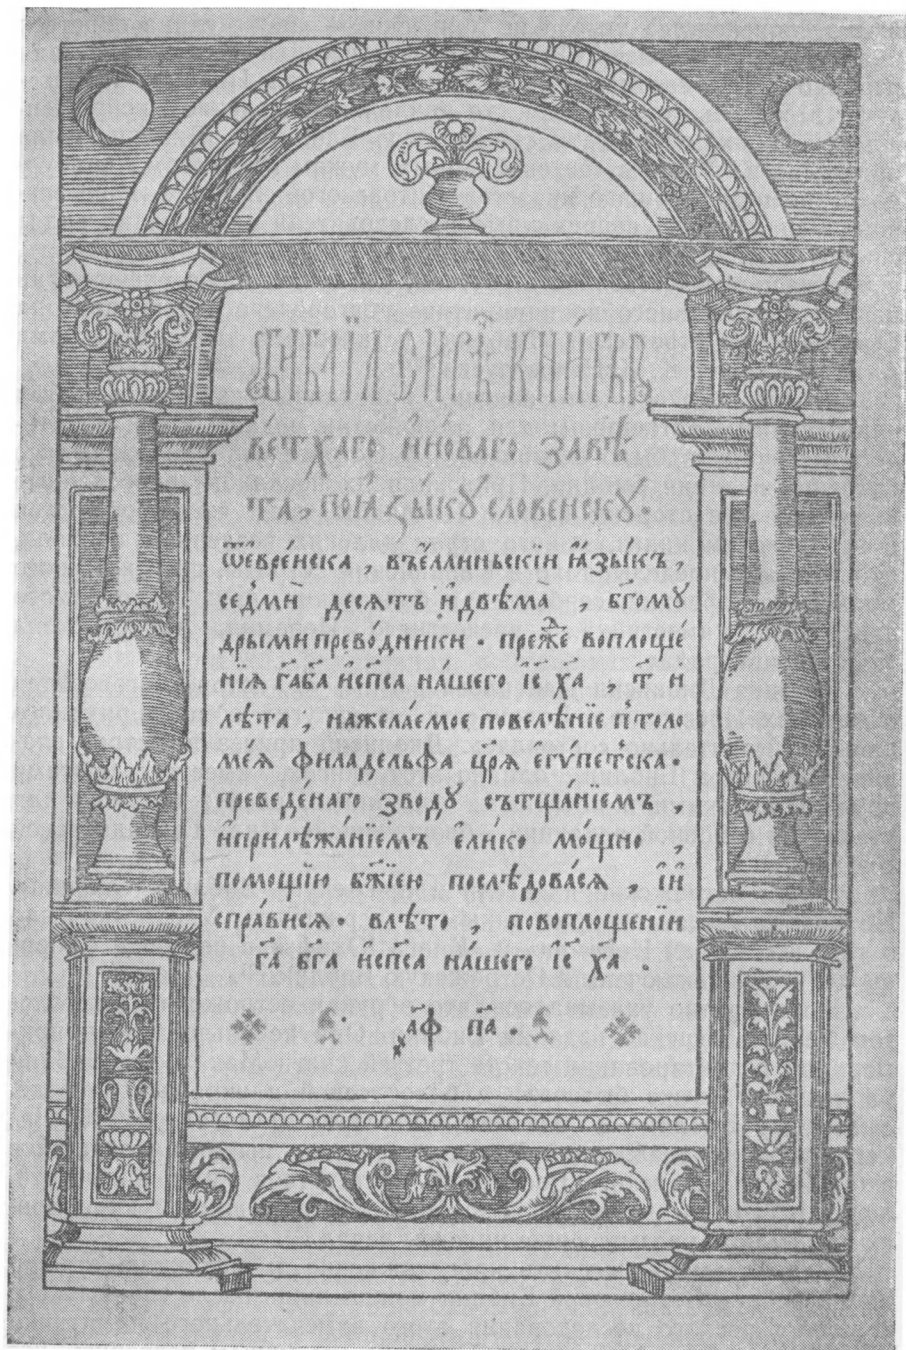 БИ́БЛЇА СИРѢ́Ч КНИ́ГЫ
ВЕ́ТХАГО И҆НО́ВАГО ЗАВѢ
ТА, ПОꙖ҆ЗЫ́КУ СЛОВЕНСКУ.
ѿевре́йска , въе́ллиньскїи ꙗ҆зы́къ ,
се́дмиⷨ десѧтъ и҆двѣмаⷭ , бг҃омꙋ
дрыми прево́дники . преⷤ҆е воплоще́
нїѧ гⷭ҇абг҃а и҆сп҃са на́шего і҆с҃ ха҃ , т҃ и
лѣта , нажела́емое повелѣнїе п̾толо
ме́ѧ филаделфа цр҃ѧ е҆гѵпет̾ска .
преведе́наго зводꙋ сътща́нїемъ ,
и҆прилѣжа́нїемъ е҆лико мо́щно ,
помощїю бж҃їею послѣдова́сѧ , і҆и
спра́висѧ . влѣто , повоплощенїи
га҃ бг҃а и҆сп҃са на́шего і҆с҃ ха҃ .
҂а҃ф п҃а .